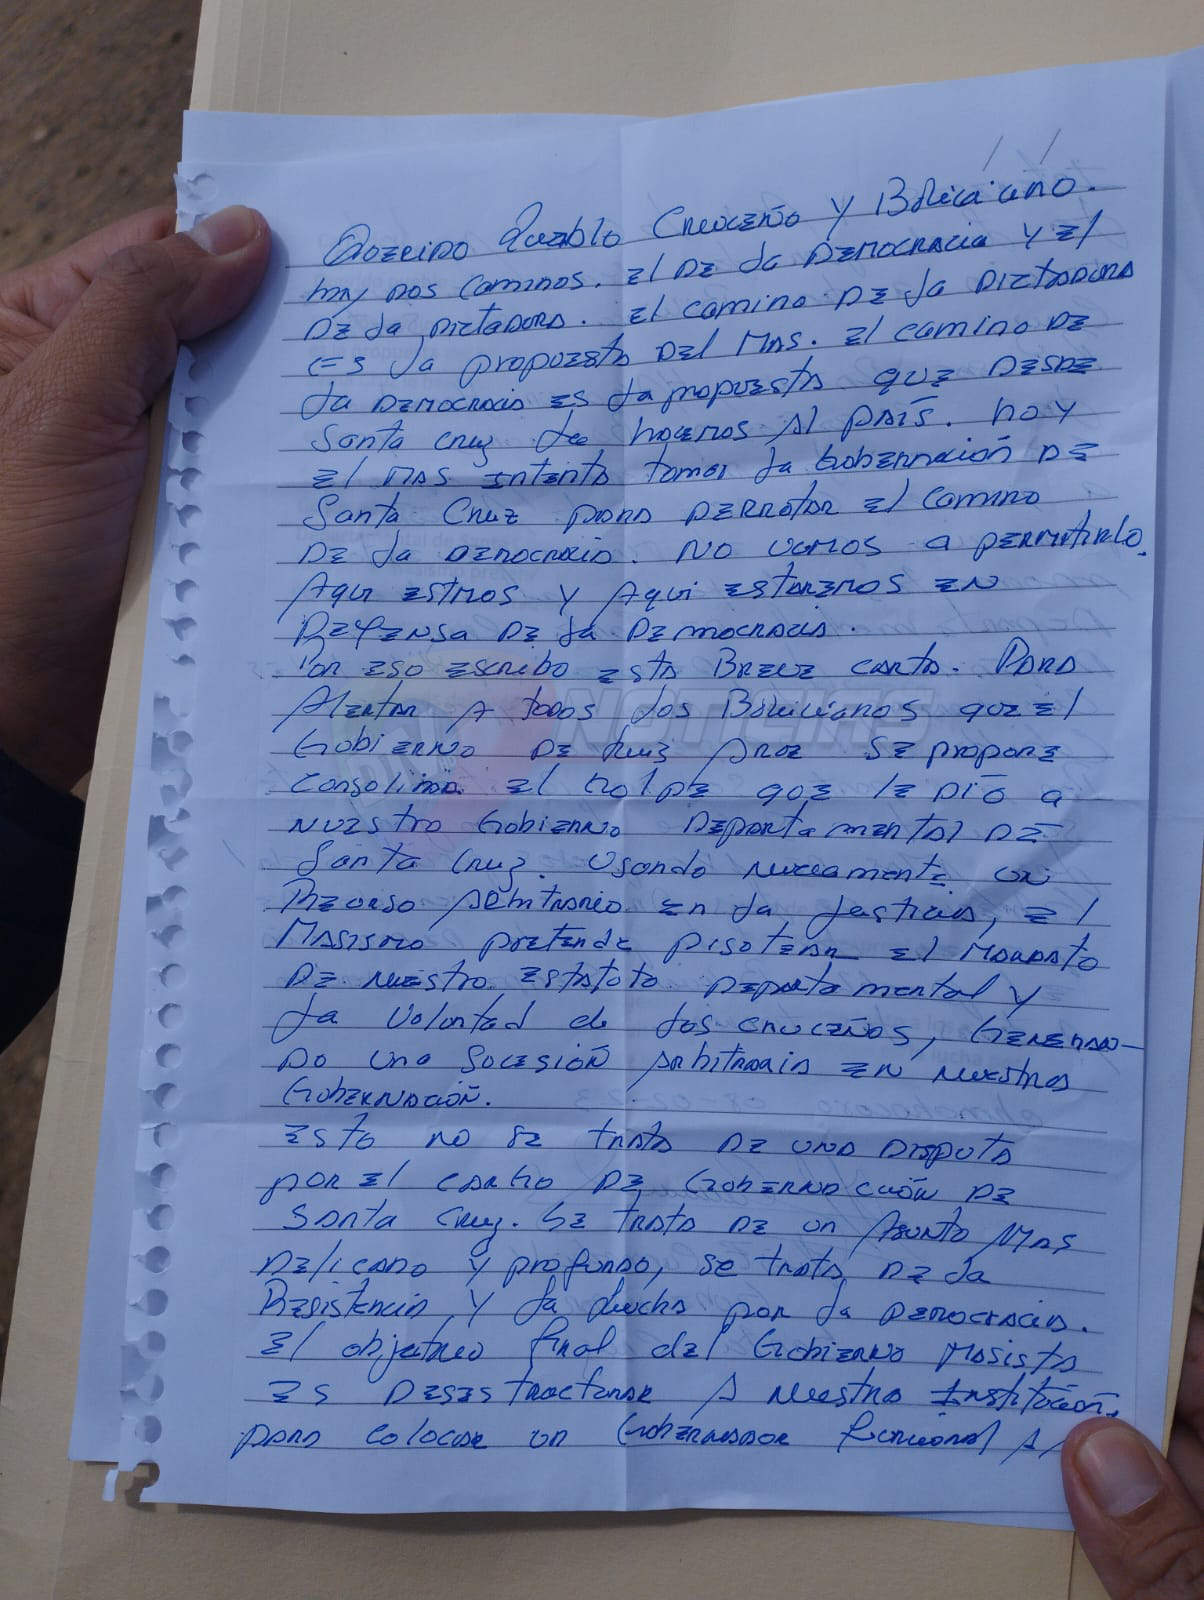 Querido Pueblo Cruceño y Boliviano.
hay dos caminos. El de la Democracia y el
de la Dictadura. El camino de la Dictadura
es la propuesta del Mas. El camino de
la Democracia es la propuesta que desde
Santa Cruz le hacemos al país. hoy
el Mas intenta tomar la Gobernación de
Santa Cruz para derrotar el camino
de la democracia. No vamos a permitirlo.
Aqui estmos y Aqui estaremos en
Defensa de la Democracia.
Por eso escribo esta Breve carta. Para
Alertar a todos los Bolivianos que el
Gobierno de Luis Arce se propone
consolidar el Golpe que le dió a
nuestro Gobierno Departamental de
Santa Cruz. Usando nuevamente un
Recurso Arbitrario en la Justicia, el
Masismo pretende pisotear el Mandato
de nuestro Estatuto Departamental y
la Voluntad de los cruceños, Generan-
do una Sucesión Arbitraria en nuestra
Gobernación.
Esto no se trata de una disputa
por el cargo de Gobernación de
Santa Cruz. Se trata de un Asunto Mas
Delicado y profundo, se trata de la
Resistencia y la Lucha por la Democracia.
El objetivo final del Gobierno Masista
es desestructurar a nuestra Institución,
para colocar un Gobernador funcional al
NOTICIAS